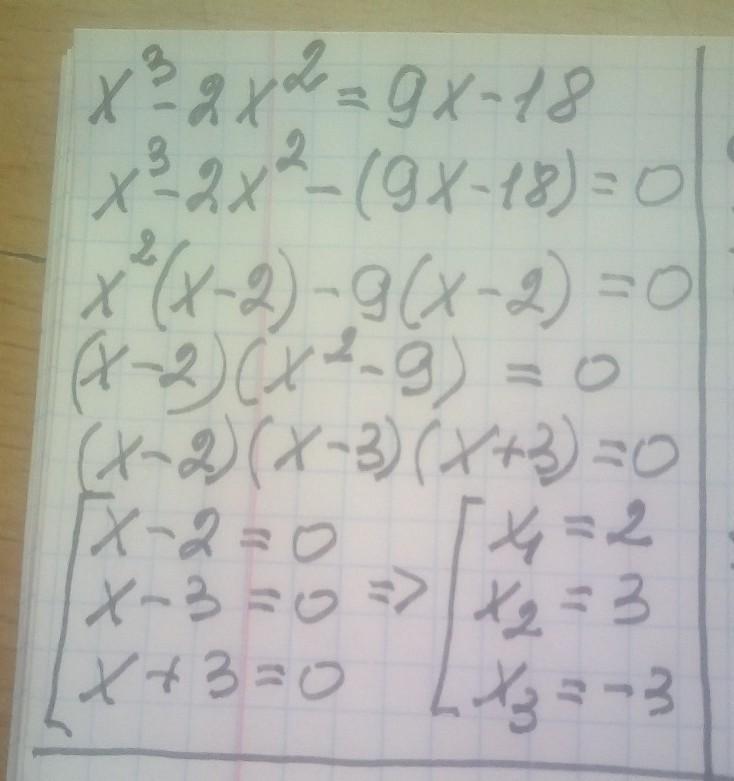 x³ - 2x² = 9x - 18
x³ - 2x² - (9x - 18) = 0
x²(x - 2) - 9(x - 2) = 0
(x - 2)(x² - 9) = 0
(x - 2)(x - 3)(x + 3) = 0
[x - 2 = 0 [x₁ = 2
x - 3 = 0 => x₂ = 3
x + 3 = 0 x₃ = -3